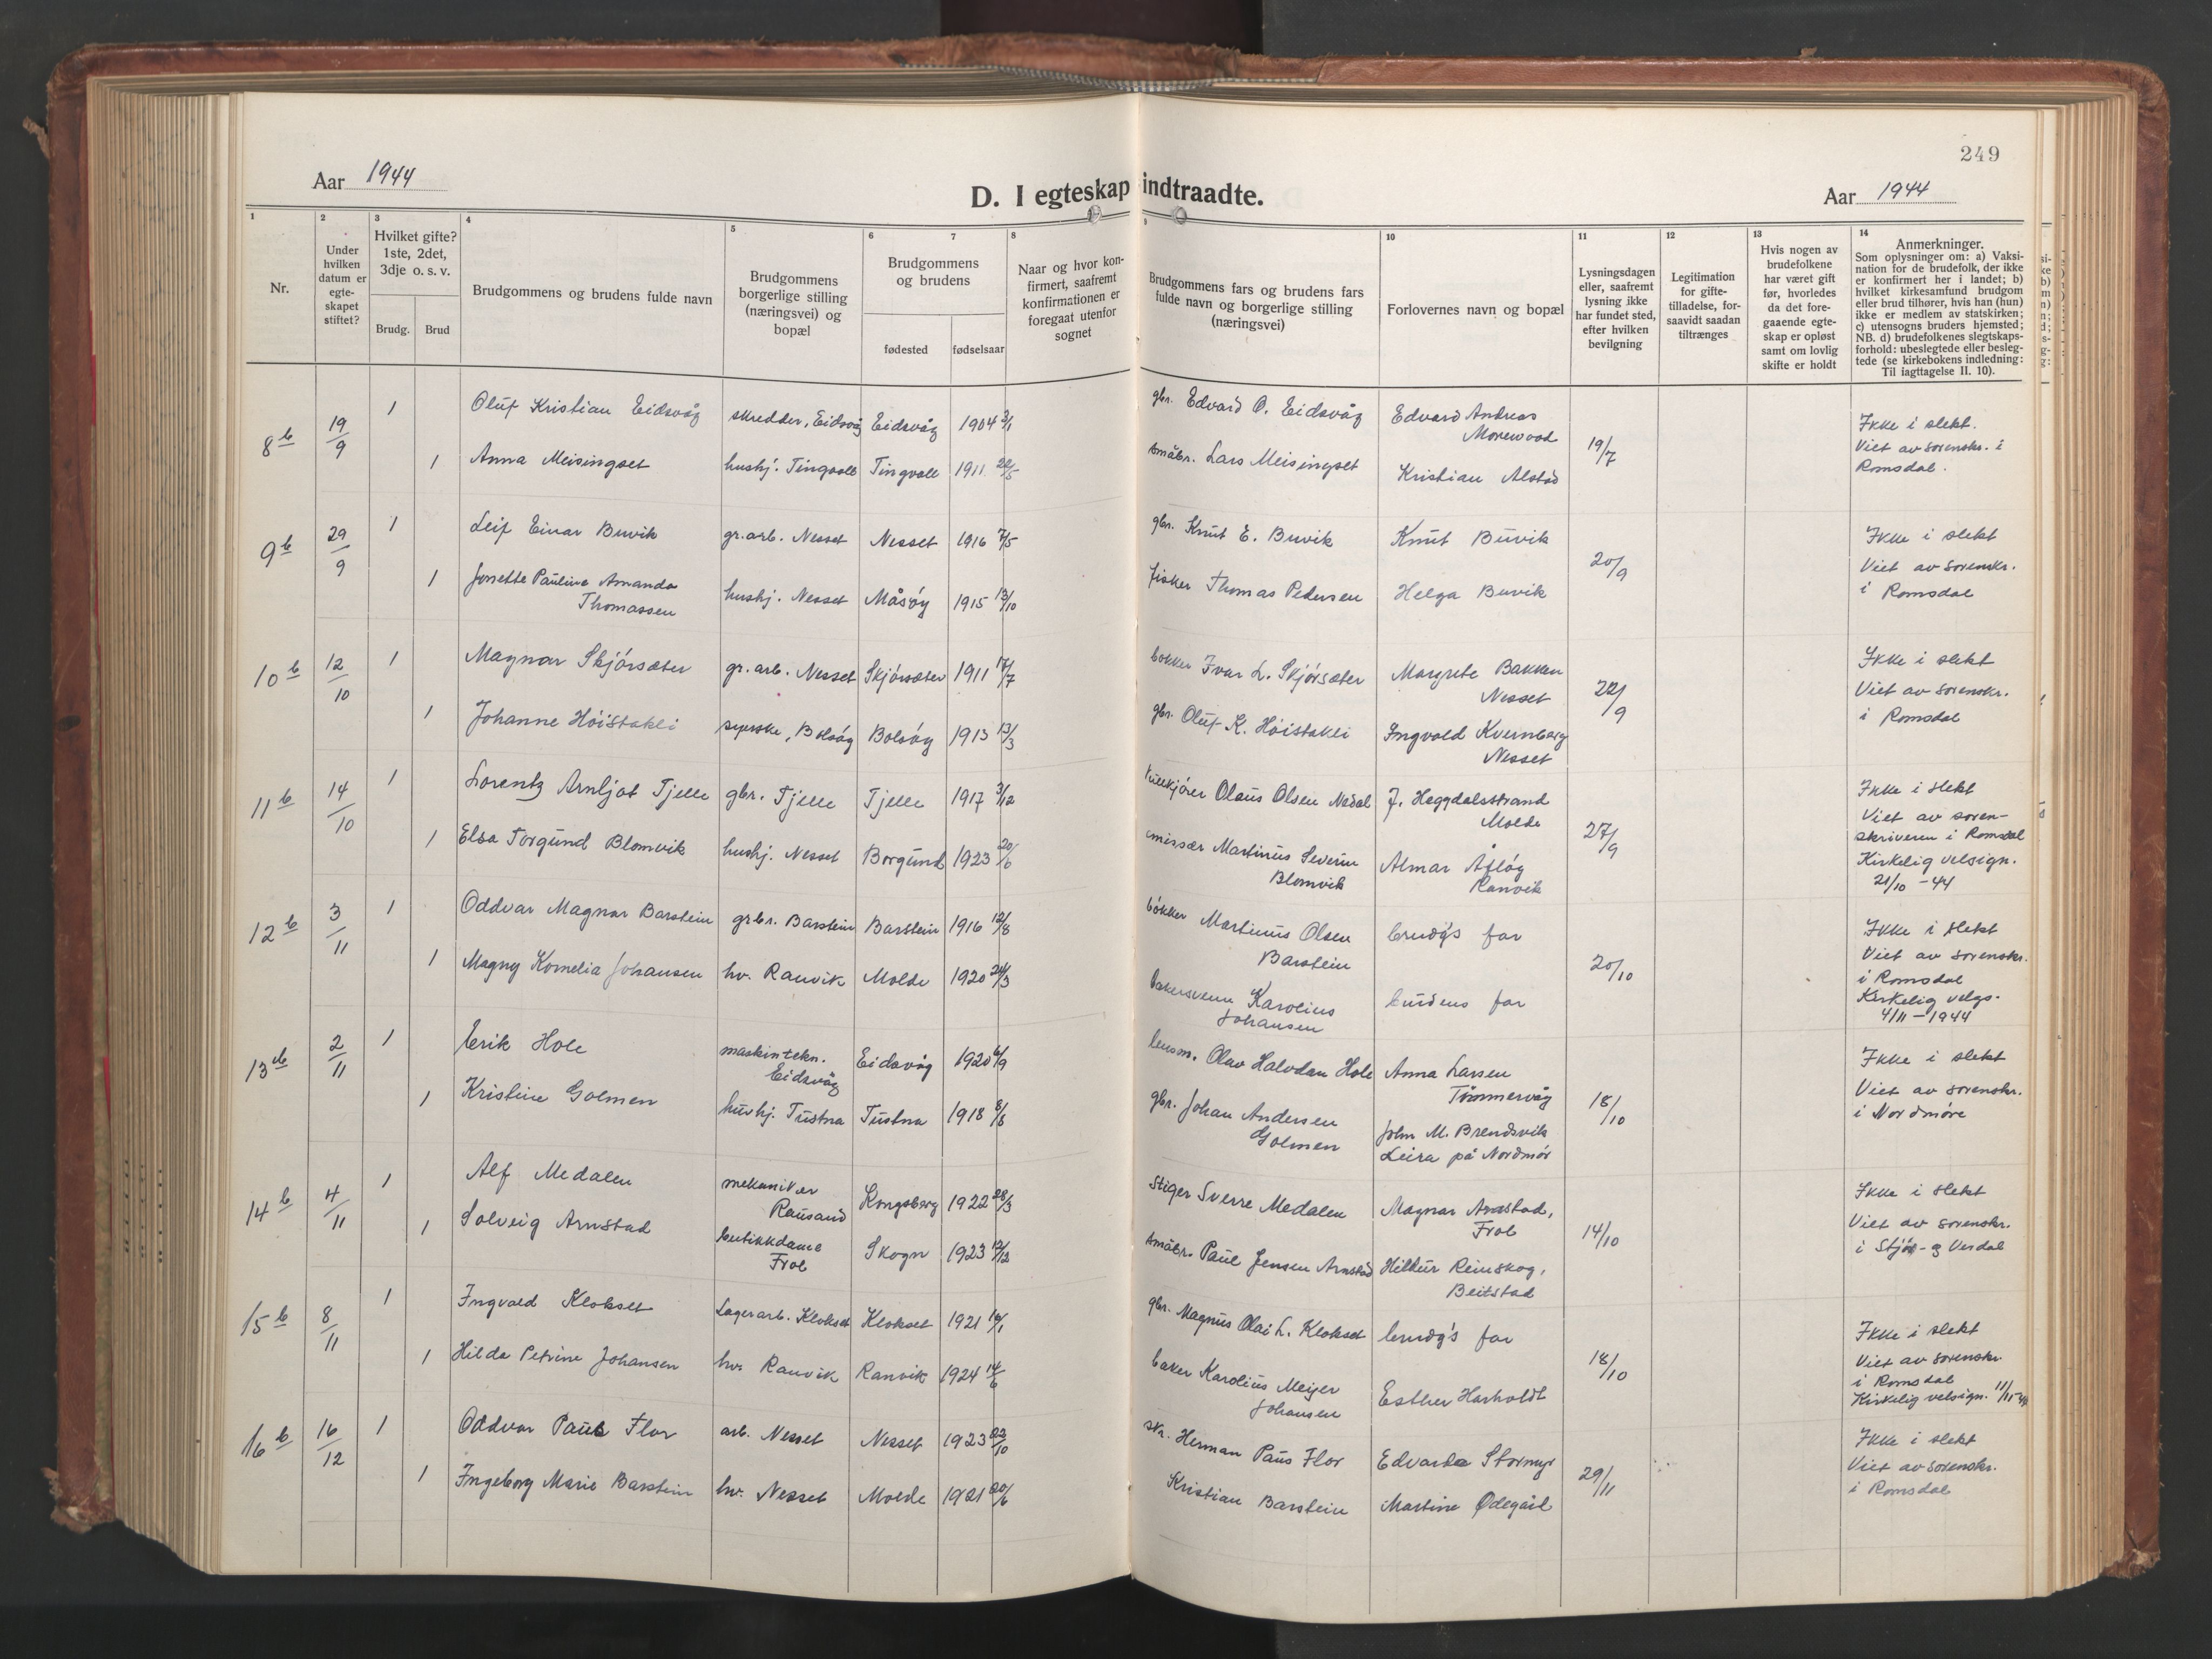 249
Aar 1944
D. I egteskap indtraadte.
Aar 1944
1
2
3
4
5
6
7
8
9
10
11
12
13
14
Nr.
Under
hvilken
datum er
egte-
skapet
stiftet?
Hvilket gifte?
1ste, 2det,
3dje o. s. v.
Brudg.
Brud
Brudgommens og brudens fulde navn
Brudgommens
borgerlige stilling
(næringsvei) og
bopæl
Brudgommens
og brudens
fødested
fødselsaar
Naar og hvor kon-
firmert, saafremt
konfirmationen er
foregaat utenfor
sognet
Brudgommens fars og brudens fars
fulde navn og borgerlige stilling
(næringsvei)
Forlovernes navn og bopæl
Lysningsdagen
eller, saafremt
lysning ikke
har fundet sted,
efter hvilken
bevilgning
Legitimation
for gifte-
tilladelse, for-
saavidt saadan
tiltrænges
Hvis nogen av
brudefolkene
har været gift
før, hvorledes
da det fore-
gaaende egte-
skap er opløst
samt om lovlig
skifte er holdt
Anmerkninger.
Som oplysninger om: a) Vaksi-
nation for de brudefolk, der ikke
er konfirmert her i landet; b)
hvilket kirkesamfund brudgom
eller brud tilhører, hvis han (hun)
ikke er medlem av statskirken;
c) utensogns bruders hjemsted;
NB. d) brudefolkenes slegtskaps-
forhold: ubeslegtede eller besleg-
tede (se kirkebokens indledning:
Til iagttagelse II. 10).
8 b 19/9 1 Oluf Kristian Eidsvåg skredder, Eidsvåg Eidsvåg 1904 3/1 gbr. Edvard O. Eidsvåg Edvard Andreas
Morewood 19/7 Ikke i slekt.
Viet av sorenskr. i
Romsdal.
1 Anna Meisingset hushj. Tingvoll Tingvoll 1911 22/5 småbr. Lars Meisingset Kristian Alstad
9 b 29/9 1 Leif Einar Buvik gr.arb. Nesset Nesset 1916 7/5 gbr. Knut E. Buvik Knut Buvik 20/9 Ikke i slekt
Viet av sorenskr.
i Romsdal
1 Josette Pauline Amanda
Thomassen hushj. Nesset Måsøy 1915 13/10 fisker Thomas Pedersen Helga Buvik
10 b 12/10 1 Magnar Skjørsæter gr. arb. Nesset Skjørsæter 1911 17/7 bøkker Ivar L. Skjørsæter Margrete Bakken
Nesset 22/9 Ikke i slekt
Viet av sorenskr.
i Romsdal
1 Johanne Höistakli syerske, Bolsøy Bolsøy 1913 13/3 gbr. Oluf K. Höistakli Ingvald Kvernberg
Nesset
11 b 14/10 1 Lorentz Arnljot Tjelle gbr. Tjelle Tjelle 1917 3/12 Olaus Olsen Nedal J. Heggdalsstrand
Molde 27/9 Ikke i slekt
Viet av soren-
skriveren i Romsdal
Kirkelig velsign.
21/10 - 44
1 Elsa Torgund Blomvik hushj. Nesset Borgund 1923 20/6 emissær Martinus Severin
Blomvik Almar Åfløy
Ranvik
12 b 3/11 1 Oddvar Magnar Barstein grbr. Barstein Barstein 1916 12/8 bökker Martinus Olsen
Barstein brudg's far 20/10 Ikke i slekt
Viet av sorenskr.
i Romsdal
Kirkelig velgs.
4/11 - 1944
1 Magny Kornelia Johansen hv. Ranvik Molde 1920 24/3 bakersvenn Karolius
Johansen burdens far
13 b 2/11 1 Erik Hole maskintekn.
Eidsvåg Eidsvåg 1920 6/9 lensm. Olav Halvdan Hole Anna Larsen
Tömmervåg 18/10 Ikke i slekt
Viet av sorenskr.
i Nordmöre
1 Kristine Golmen hushj. Tustna Tustna 1918 8/8 gbr. Johan Andersen
Golmen John M. Brendsvik
Leira på Nordmör
14 b 4/11 1 Alf Medalen mekaniker
Rausand Kongsberg 1922 28/3 Stiger Sverre Medalen Magnar Arnstad,
Frol 14/10 Ikke i slekt
Viet av sorenskr.
i Stjør- og Verdal
1 Solveig Arnstad butikkdame
Frol Skogn 1923 12/12 småbr. Paul Jensen Arnstad Hildur Reinskog,
Beitstad
15 b 8/11 1 Ingvald Klokset Lagerarb. Klokset Klokset 1921 16/1 gbr. Magnus Olai L. Klokset brudg's far 18/10 Ikke i slekt
Viet av sorenskr.
i Romsdal
Kirkelig velsign. 11/11-44
1 Hilda Petrine Johansen hv. Ranvik Ranvik 1924 14/6 baker Karolius Meijer
Johansen Esther Harholdt
16 b 16/12 1 Oddvar Paul Flor arb. Nesset Nesset 1923 22/10 skr. Herman Paus Flor Edvarda Stormyr 29/11 Ikke i slekt
Viet av sorenskr.
i Romsdal
1 Ingeborg Marie Barstein hv. Nesset Molde 1921 20/6 Kristian Barstein Martine Ødegård